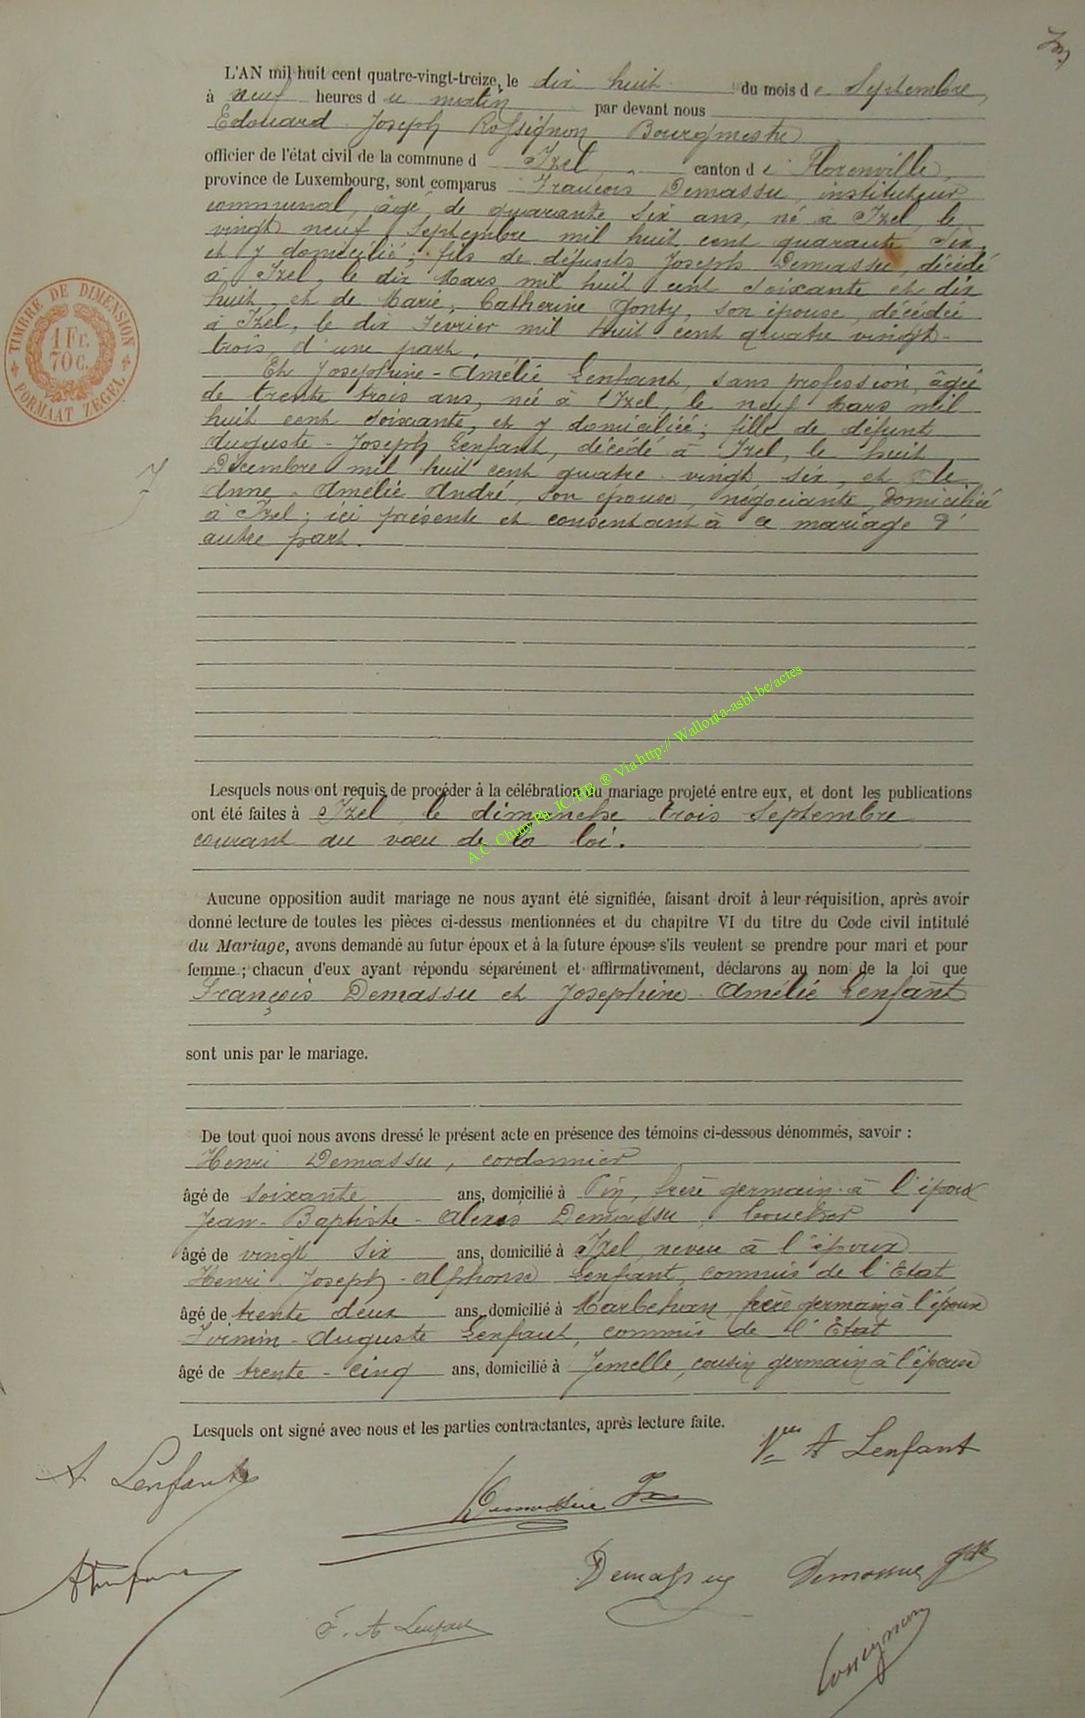 L'AN mil huit cent quatre-vingt-treize, le dix huit du mois de Septembre,
à neuf heures du matin par devant nous
Edouard Joseph Rossignon Bourgmestre
officier de l'état civil de la commune d Izel, canton de Florenville,
province de Luxembourg, sont comparus François Demassu, instituteur
communal, âgé de quarante six ans, né à Izel, le
vingt neuf Septembre mil huit cent quarante six,
et y domicilié; fils de défunts Joseph Demassu, décédé
à Izel, le dix Mars mil huit cent soixante et dix
huit, et de Marie, Catherine Gonty, son épouse, décédée
à Izel, le dix Février mil huit cent quatre vingt-
trois, d'une part,
Et Joséphine-Amélie Lenfant, sans profession, âgée
de trente trois ans, née à Izel, le neuf Mars mil
huit cent soixante, et y domiciliée; fille de défunt
Auguste-Joseph Lenfant, décédé à Izel, le huit
Décembre mil huit cent quatre-vingt six, et de
Anne-Amélie André, son épouse, négociante, domiciliée
à Izel; ici présente et consentant à ce mariage d'
autre part.
Lesquels nous ont requis de procéder à la célébration du mariage projeté entre eux, et dont les publications
ont été faites à Izel, le dimanche trois Septembre
courant au vœu de la loi.
Aucune opposition audit mariage ne nous ayant été signifiée, faisant droit à leur réquisition, après avoir
donné lecture de toutes les pièces ci-dessus mentionnées et du chapitre VI du titre du Code civil intitulé
du Mariage, avons demandé au futur époux et à la future épouse s'ils veulent se prendre pour mari et pour
femme; chacun d'eux ayant répondu séparément et affirmativement, déclarons au nom de la loi que
François Demassu et Joséphine-Amélie Lenfant
sont unis par le mariage.
De tout quoi nous avons dressé le présent acte en présence des témoins ci-dessous dénommés, savoir :
Henri Demassu, cordonnier
âgé de soixante ans, domicilié à Pin, frère germain à l'époux
Jean-Baptiste-Alexis Demassu, boucher
âgé de vingt six ans, domicilié à Izel, neveu à l'époux
Henri-Joseph-Alphonse Lenfant, commis de l'Etat
âgé de trente deux ans, domicilié à Marbehan, frère germain à l'épouse
Firmin-Auguste Lenfant, commis de l'Etat
âgé de trente-cinq ans, domicilié à Jemelle, cousin germain à l'épouse
Lesquels ont signé avec nous et les parties contractantes, après lecture faite.
Vve A Lenfant
A Lenfant
Demassu Fr
Demassu Demassu
F. A Lenfant
Rossignon
TIMBRE DE DIMENSION
1 Fr.
70 c.
FORMAAT ZEGEL
A.C. Chiny Pa JC HB ® Via http:// Wallonia-asbl.be/actes